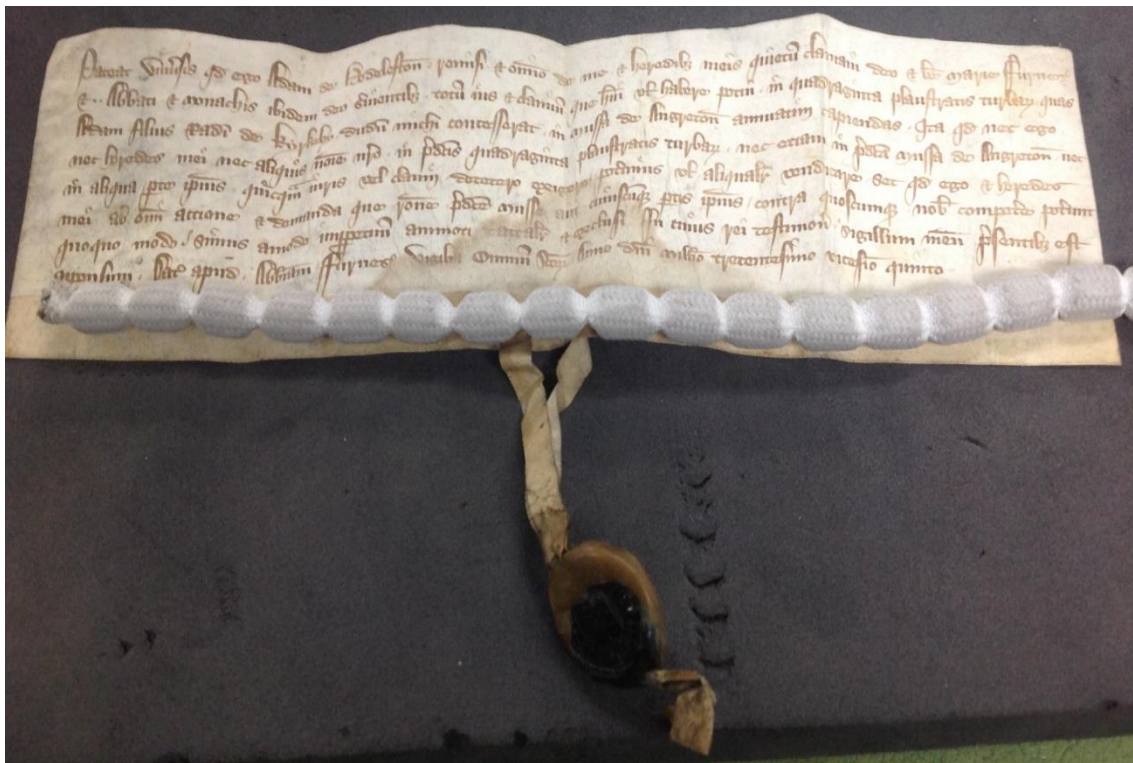 Pateat Univ'sis qd ego Adam de Hodeleston remisi & om'io de me & heredib; meis quietu' clamavi deo & be' Marie Furnes'
& .. Abbati & Monachis ibidem deo s'vientib; totu' ius & clamiu' que h'ui v'l habere potui in quadraginta plaustratis turbar' quas
Adam filius Rad'i de Kyrkeby dudu' michi concesserat in mussa de Angreton annuatim capiendas . Ita qd nec ego
nec heredes mei nec aliquis no'ie n'ro . in p'd'cis quadraginta plaustratis turbar' . nec etiam in p'd'ca mussa de Angreton nec
in aliqua p'te ip'ius . quicq'm iuris vel clamii decetero exigere pot'imus v'l aliqualit' vendicare Set qd ego & heredes
mei ab om'i accione & demanda que r'one p'd'ce musse aut cuiuscu'q; p'tis ip'ius contra quoscumque nob' compet'e pot'unt
quoquo modo . Simus amodo imp'petuu' ammoti & exclusi In cuius rei testimon' sigillum meu' p'sentib; est
appensum . Dat' apud Abb'iam Furnes' Vigil' Om'iu' S'cor' Anno D'ni mill'io trecentesimo vicesimo quinto